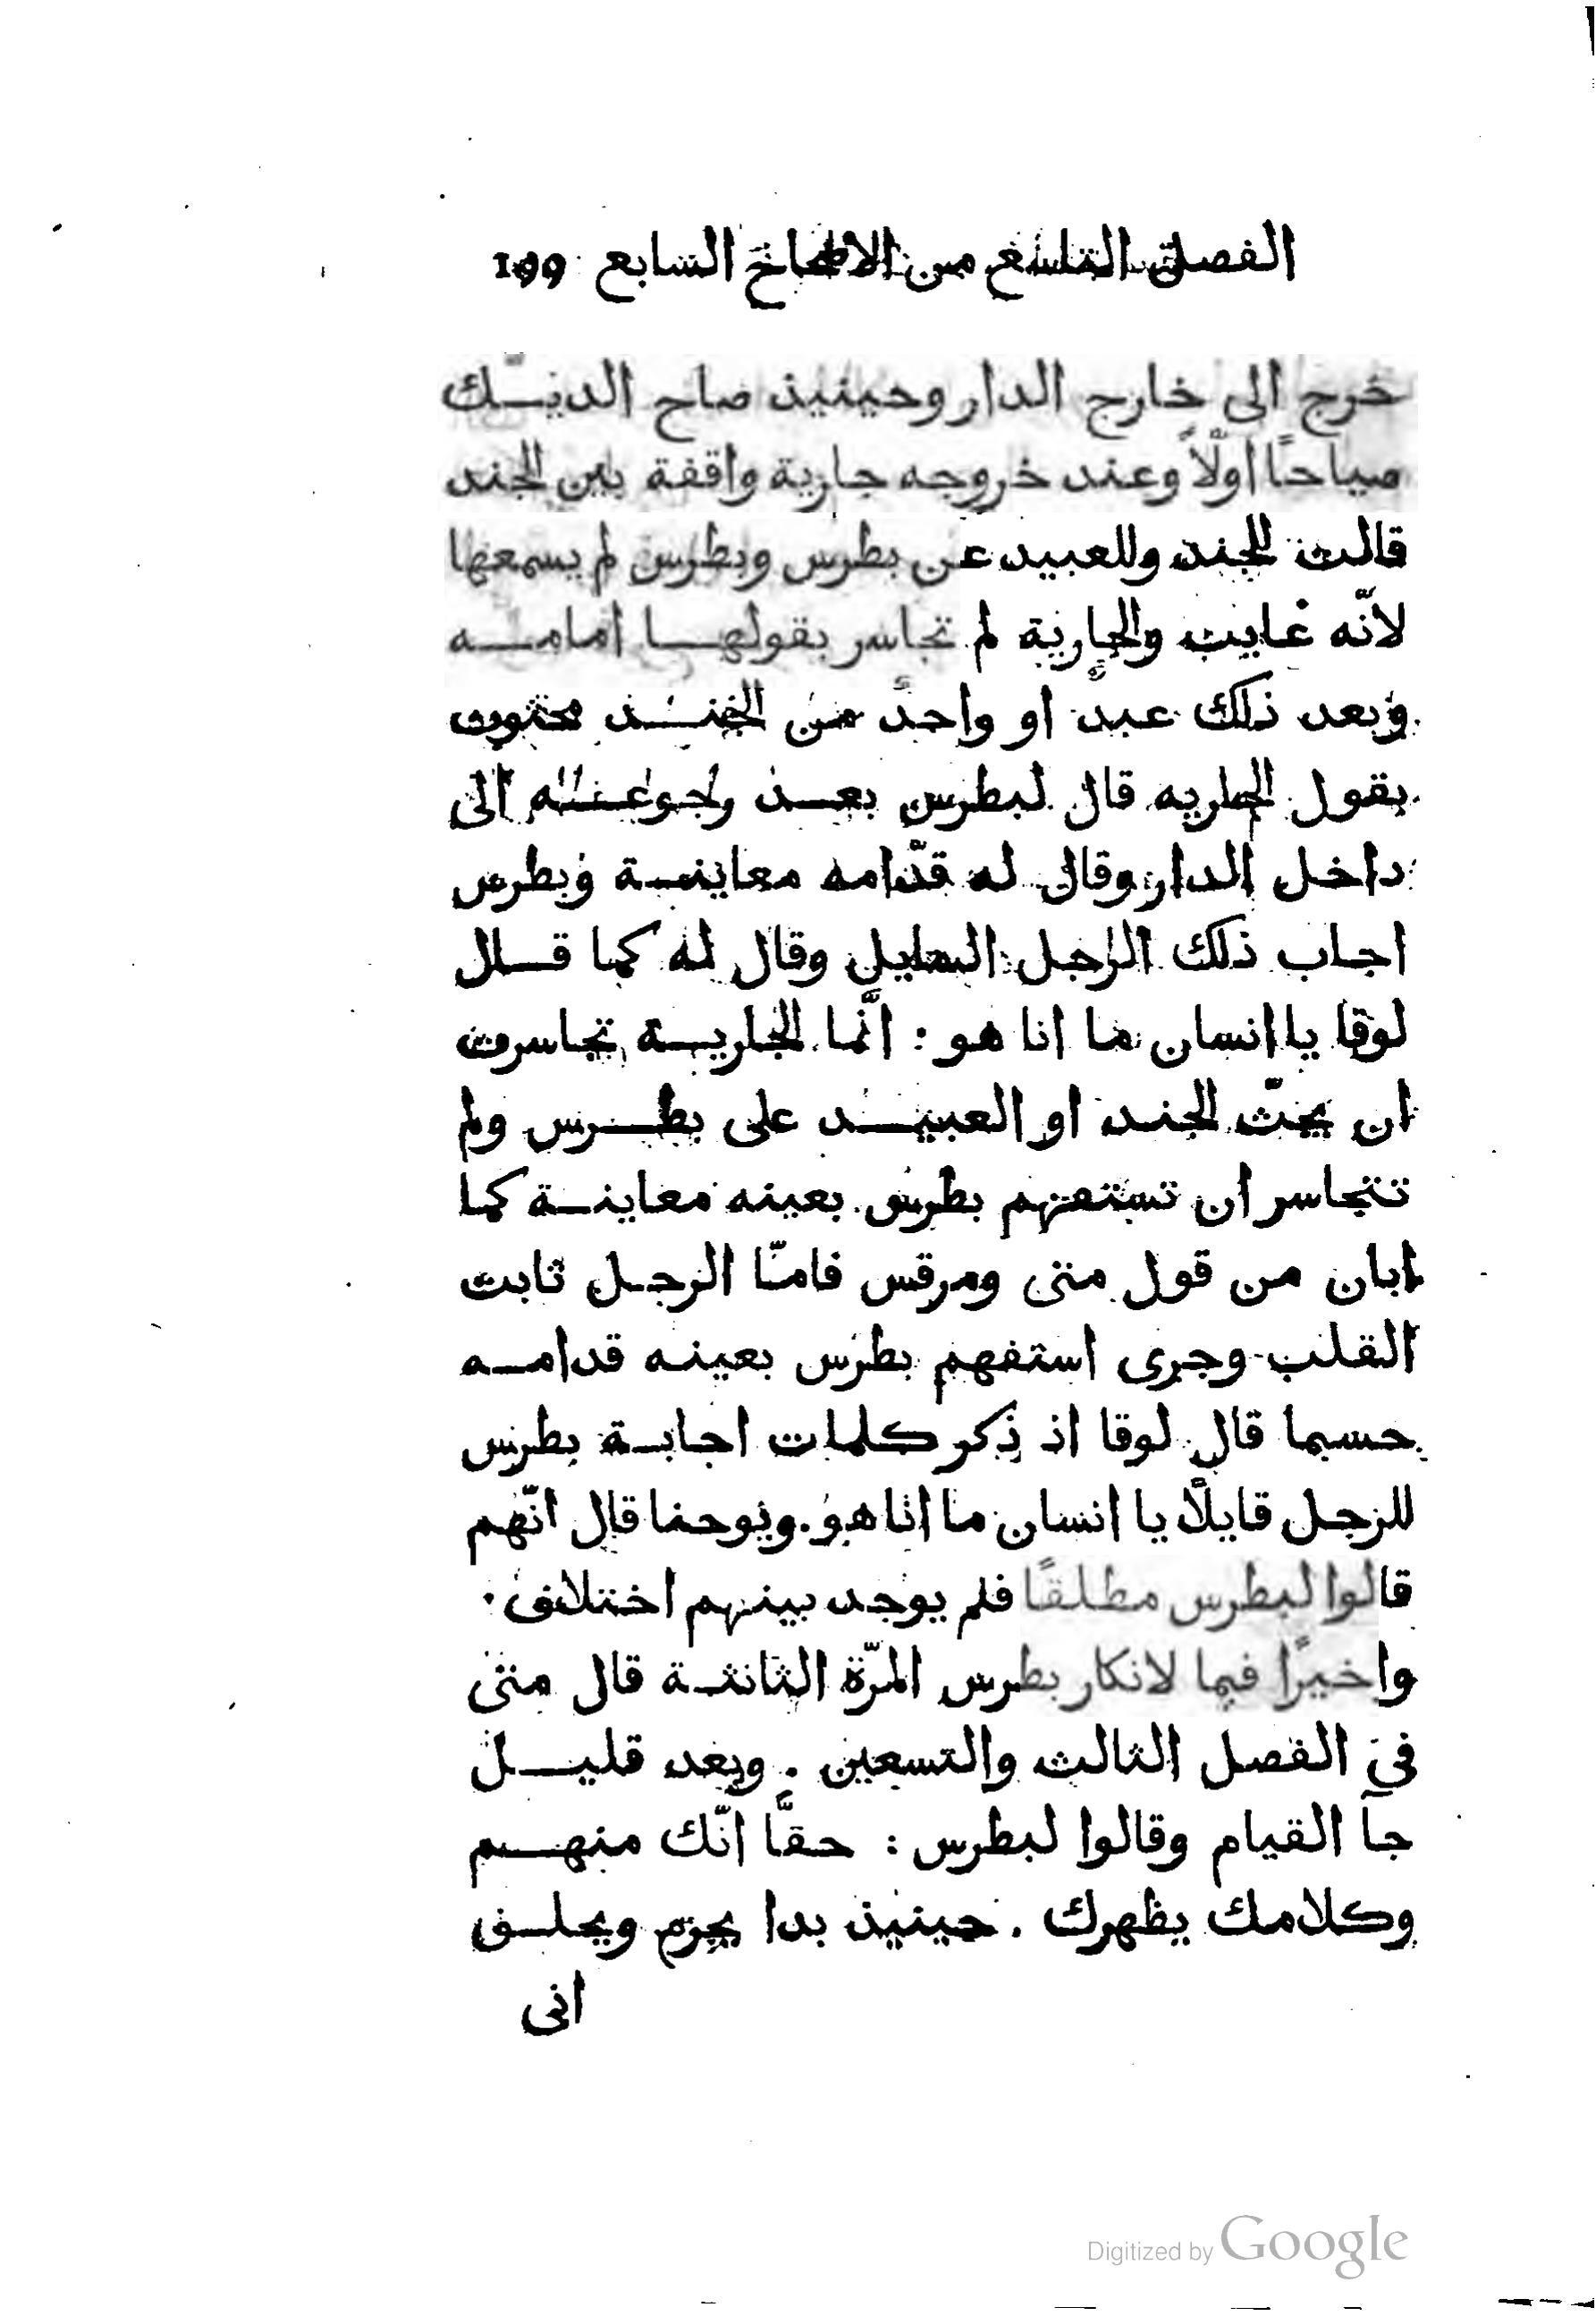 الفصل التاسع من الاصحاح السابع 199
خرج الى خارج الدار وحينيذ صاح الديـك
صياحًا اولًّا وعند خروجه جارية واقفة بين الجند
قالت للجند وللعبيد عن بطرس وبطرس لم يسمعها
لانّه غايب والجارية لم تجاسر بقولهـا امامـه
وبعد ذلك عبدٌ او واحدٌ من الجنـد محثوث
بقول الجاريه قال لبطرس بعـد رجوعـه الى
داخل الدار وقال له قدّامه معاينـة وبطرس
اجاب ذلك الرجل السايل وقال له كما قـال
لوقا يا انسان ما انا هو : انَّما الجاريـة تجاسرت
ان يحثّ الجند او العبيـد على بطـرس ولم
تتجاسر ان تستفهم بطرس بعينه معاينـة كما
ابان من قول متى ومرقس فامّا الرجـل ثابت
القلب وجرى استفهم بطرس بعينـه قدامـه
حسبما قال لوقا اذ ذكر كلمات اجابـة بطرس
للرجل قايلًا يا انسان ما انا هو . ويوحنا قال انّهم
قالوا لبطرس مطلقًا فلم يوجد بينهم اختلاف .
واخيرًا فيما لانكار بطرس المرّة الثانثـة قال متى
في الفصل الثالث والتسعين . وبعد قليـل
جآ القيام وقالوا لبطرس : حقًّا انّك منهـم
وكلامك يظهرك . حينيذ بدا يحرم ويحلـف
انى
Digitized by Google